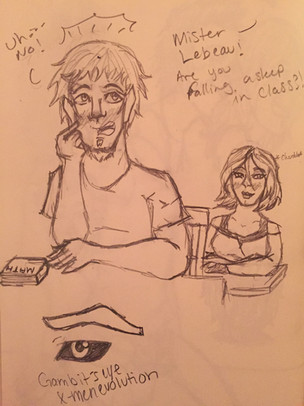 Uh..
No!
Mister
Lebeau!
Are you
falling asleep
in class?!
*chuckle*
MATH
Gambit's eye
X-men evolution